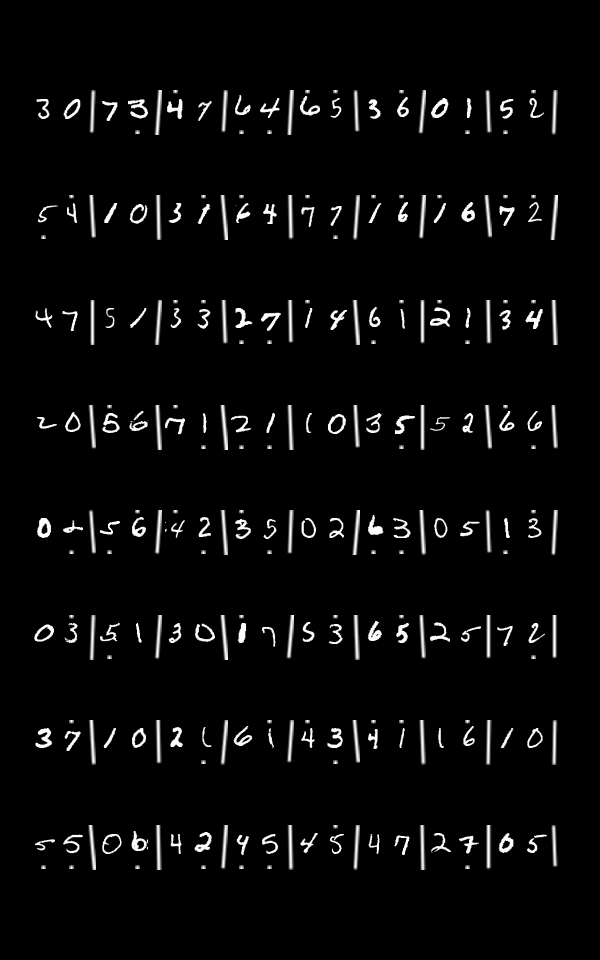 3 0 | 7 3 | 4 7 | 6 4 | 6 5 | 3 6 | 0 1 | 5 2 |
5 4 | 1 0 | 3 1 | 6 4 | 7 7 | 1 6 | 1 6 | 7 2 |
4 7 | 5 1 | 3 3 | 2 7 | 1 4 | 6 1 | 2 1 | 3 4 |
2 0 | 5 6 | 7 1 | 2 1 | 1 0 | 3 5 | 5 2 | 6 6 |
0 2 | 5 6 | 4 2 | 3 5 | 0 2 | 6 3 | 0 5 | 1 3 |
0 3 | 5 1 | 3 0 | 1 7 | 5 3 | 6 5 | 2 5 | 7 2 |
3 7 | 1 0 | 2 1 | 6 1 | 4 3 | 4 1 | 1 6 | 1 0 |
5 5 | 0 6 | 4 2 | 4 5 | 4 5 | 4 7 | 2 7 | 0 5 |